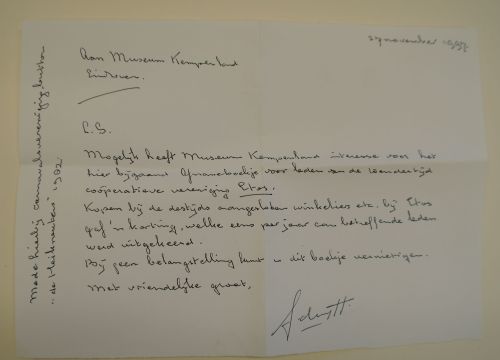 november 1992
Aan Museum Kempenland
Eindhoven.
L.S.
Mogelijk heeft Museum Kempenland interesse voor het
hier bijgaand afnameboekje voor leden van de toendertijd
coöperatieve vereniging Etos.
Kopen bij de destijds aangesloten winkeliers etc. bij Etos
gaf 'n korting, welke eens per jaar aan betreffende leden
werd uitgekeerd.
Bij geen belangstelling kunt u dit boekje vernietigen.
Met vriendelijke groet,
Mede hierbij carnavalsvereniging
"de Heikneuters" 1982